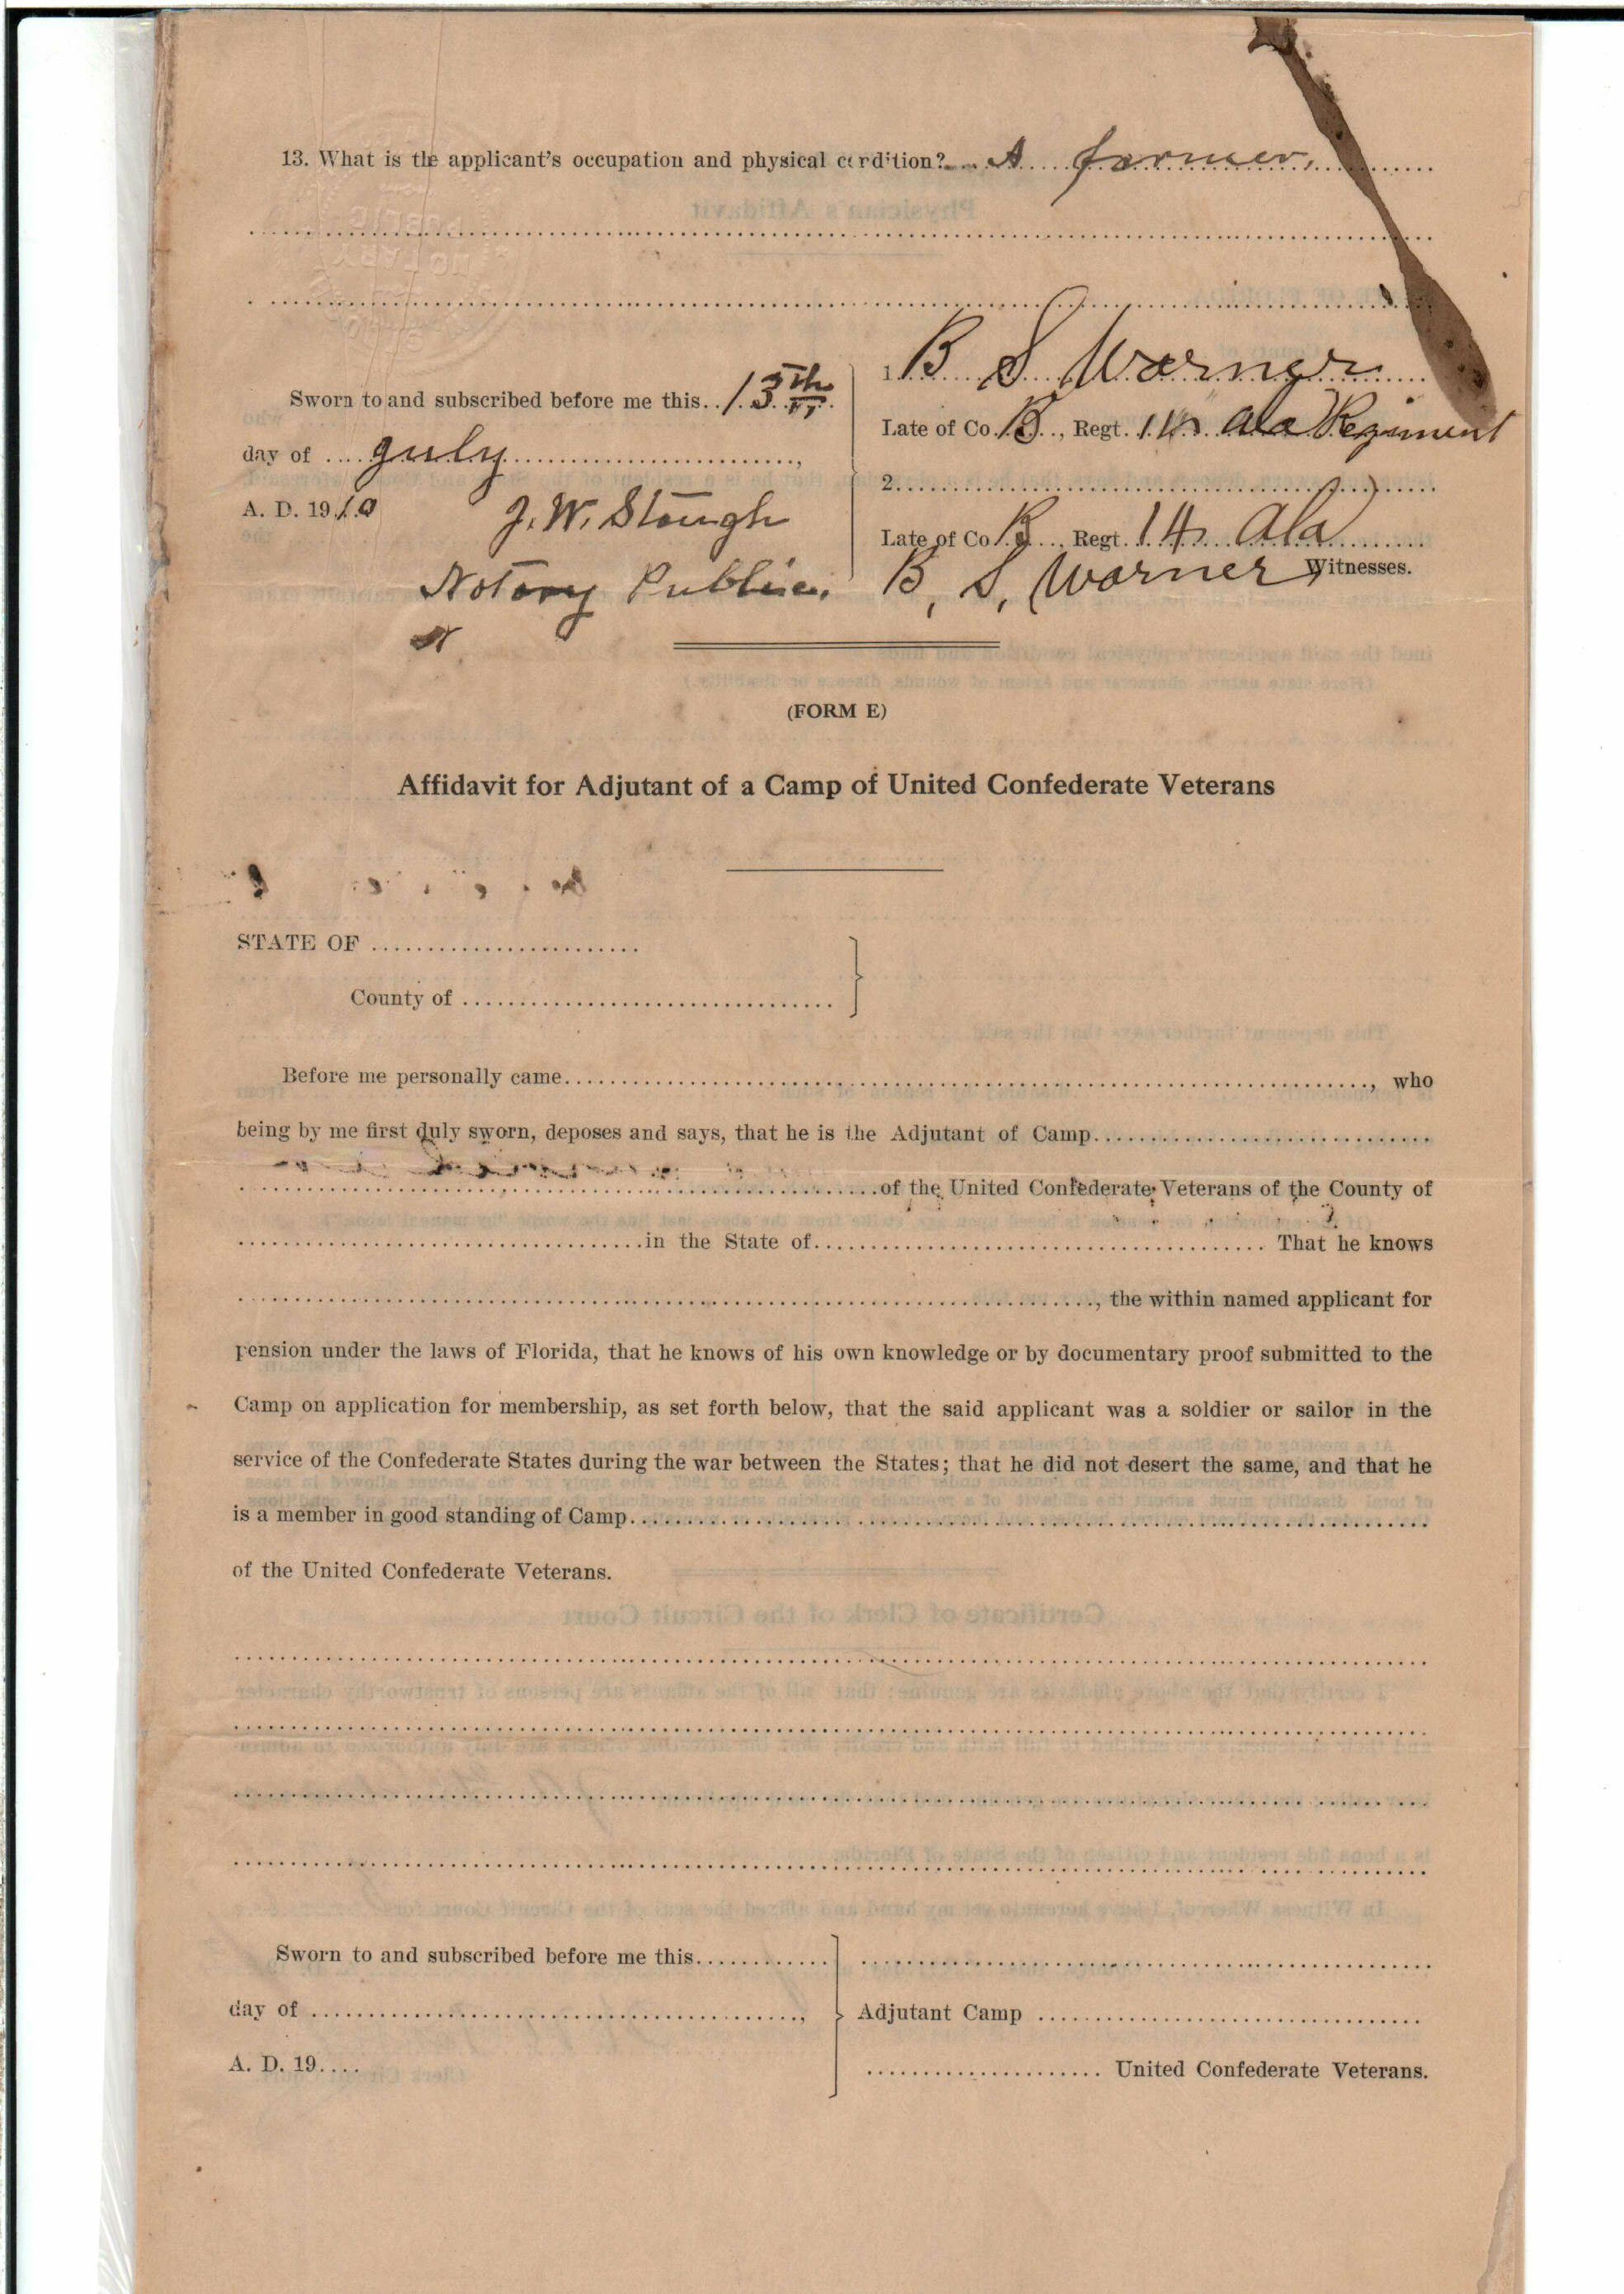 13. What is the applicant's occupation and physical condition? A farmer.
Sworn to and subscribed before me this 13th
day of July,
A. D. 1910
J. W. Stough
Notary Public.
1. B S Warner
Late of Co. B, Regt. 14 Ala Regiment
2.
Late of Co B, Regt. 14 Ala
B. S. Warner Witnesses.
(FORM E)
Affidavit for Adjutant of a Camp of United Confederate Veterans
STATE OF
County of
Before me personally came, who
being by me first duly sworn, deposes and says, that he is the Adjutant of Camp
of the United Confederate Veterans of the County of
in the State of That he knows
, the within named applicant for
pension under the laws of Florida, that he knows of his own knowledge or by documentary proof submitted to the
Camp on application for membership, as set forth below, that the said applicant was a soldier or sailor in the
service of the Confederate States during the war between the States; that he did not desert the same, and that he
is a member in good standing of Camp
of the United Confederate Veterans.
Sworn to and subscribed before me this
day of,
A. D. 19
Adjutant Camp
United Confederate Veterans.